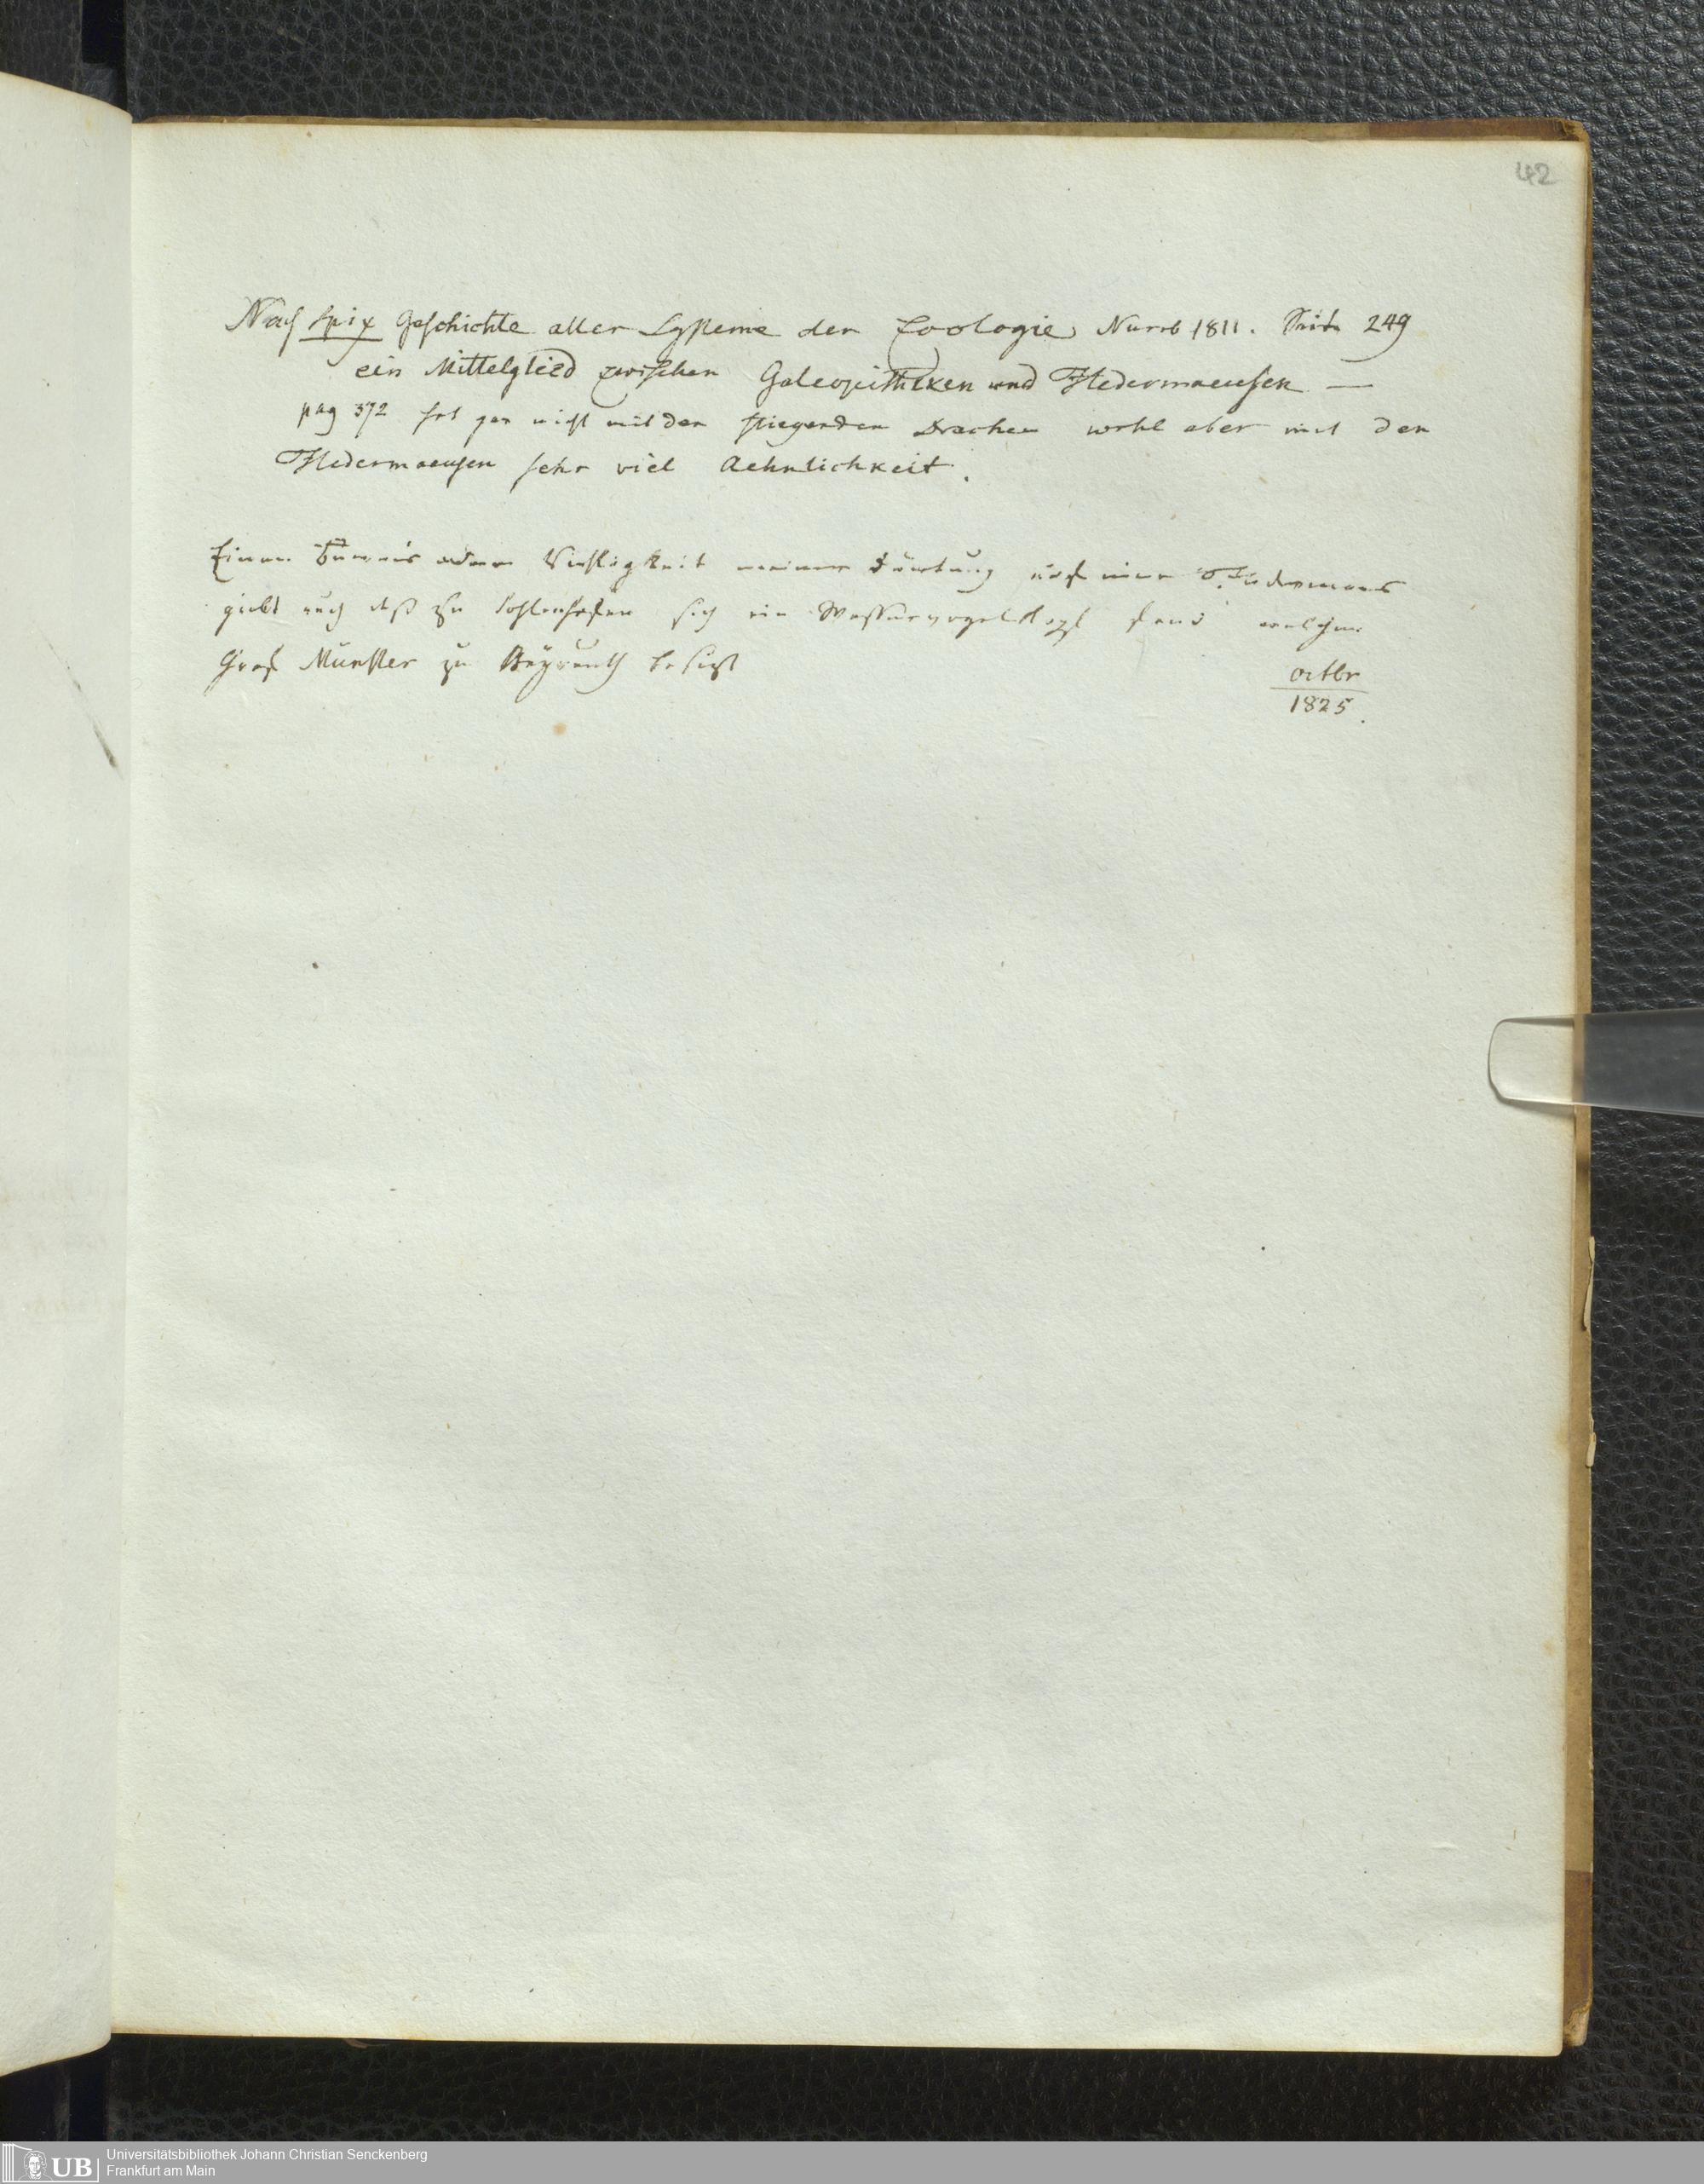 42
Nach Spix Geschichte aller Systeme der Zoologie Nurnb 1811. Seite 249
ein Mittelglied zwischen Galeopitheken und Fledermaeusen —
pag 372 hat gar nicht mit den fliegenden Drachen wohl aber mit den
Fledermaeusen sehr viel Aehnlichkeit.
Einen Beweis der Richtigkeit meiner Deutung
giebt auch daß zu Sohlenhofen sich ein Wasservogelkopf fand welchen
Graf Münster zu Bayreuth besizt
octbr
1825.
UB
Universitätsbibliothek Johann Christian Senckenberg
Frankfurt am Main